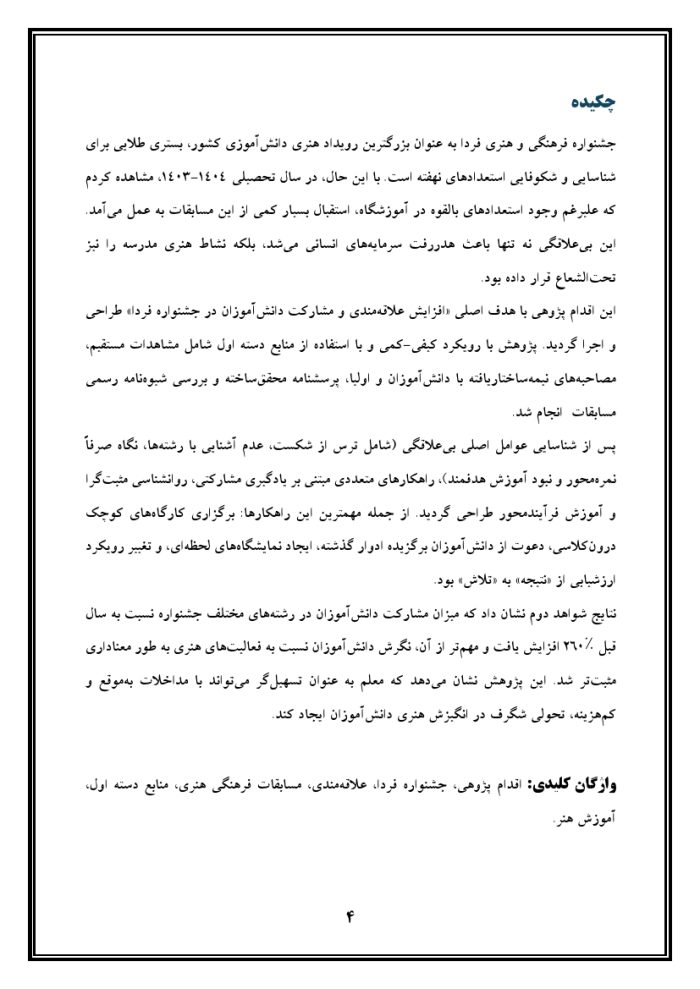 چکیده
جشنواره فرهنگی و هنری فردا به عنوان بزرگترین رویداد هنری دانش‌آموزی کشور، بستری طلایی برای
شناسایی و شکوفایی استعدادهای نهفته است. با این حال، در سال تحصیلی ۱۴۰۴-۱۴۰۳، مشاهده کردم
که علیرغم وجود استعدادهای بالقوه در آموزشگاه، استقبال بسیار کمی از این مسابقات به عمل می‌آمد.
این بی‌علاقگی نه تنها باعث هدررفت سرمایه‌های انسانی می‌شد، بلکه نشاط هنری مدرسه را نیز
تحت‌الشعاع قرار داده بود.
این اقدام پژوهی با هدف اصلی «افزایش علاقه‌مندی و مشارکت دانش‌آموزان در جشنواره فردا» طراحی
و اجرا گردید. پژوهش با رویکرد کیفی-کمی و با استفاده از منابع دسته اول شامل مشاهدات مستقیم،
مصاحبه‌های نیمه‌ساختاریافته با دانش‌آموزان و اولیا، پرسشنامه محقق‌ساخته و بررسی شیوه‌نامه رسمی
مسابقات انجام شد.
پس از شناسایی عوامل اصلی بی‌علاقگی (شامل ترس از شکست، عدم آشنایی با رشته‌ها، نگاه صرفاً
نمره‌محور و نبود آموزش هدفمند)، راهکارهای متعددی مبتنی بر یادگیری مشارکتی، روانشناسی مثبت‌گرا
و آموزش فرآیندمحور طراحی گردید. از جمله مهمترین این راهکارها: برگزاری کارگاه‌های کوچک
درون‌کلاسی، دعوت از دانش‌آموزان برگزیده ادوار گذشته، ایجاد نمایشگاه‌های لحظه‌ای، و تغییر رویکرد
ارزشیابی از «نتیجه» به «تلاش» بود.
نتایج شواهد دوم نشان داد که میزان مشارکت دانش‌آموزان در رشته‌های مختلف جشنواره نسبت به سال
قبل ۲۶۰٪ افزایش یافت و مهم‌تر از آن، نگرش دانش‌آموزان نسبت به فعالیت‌های هنری به طور معناداری
مثبت‌تر شد. این پژوهش نشان می‌دهد که معلم به عنوان تسهیل‌گر می‌تواند با مداخلات به‌موقع و
کم‌هزینه، تحولی شگرف در انگیزش هنری دانش‌آموزان ایجاد کند.
واژگان کلیدی: اقدام پژوهی، جشنواره فردا، علاقه‌مندی، مسابقات فرهنگی هنری، منابع دسته اول،
آموزش هنر.
۴